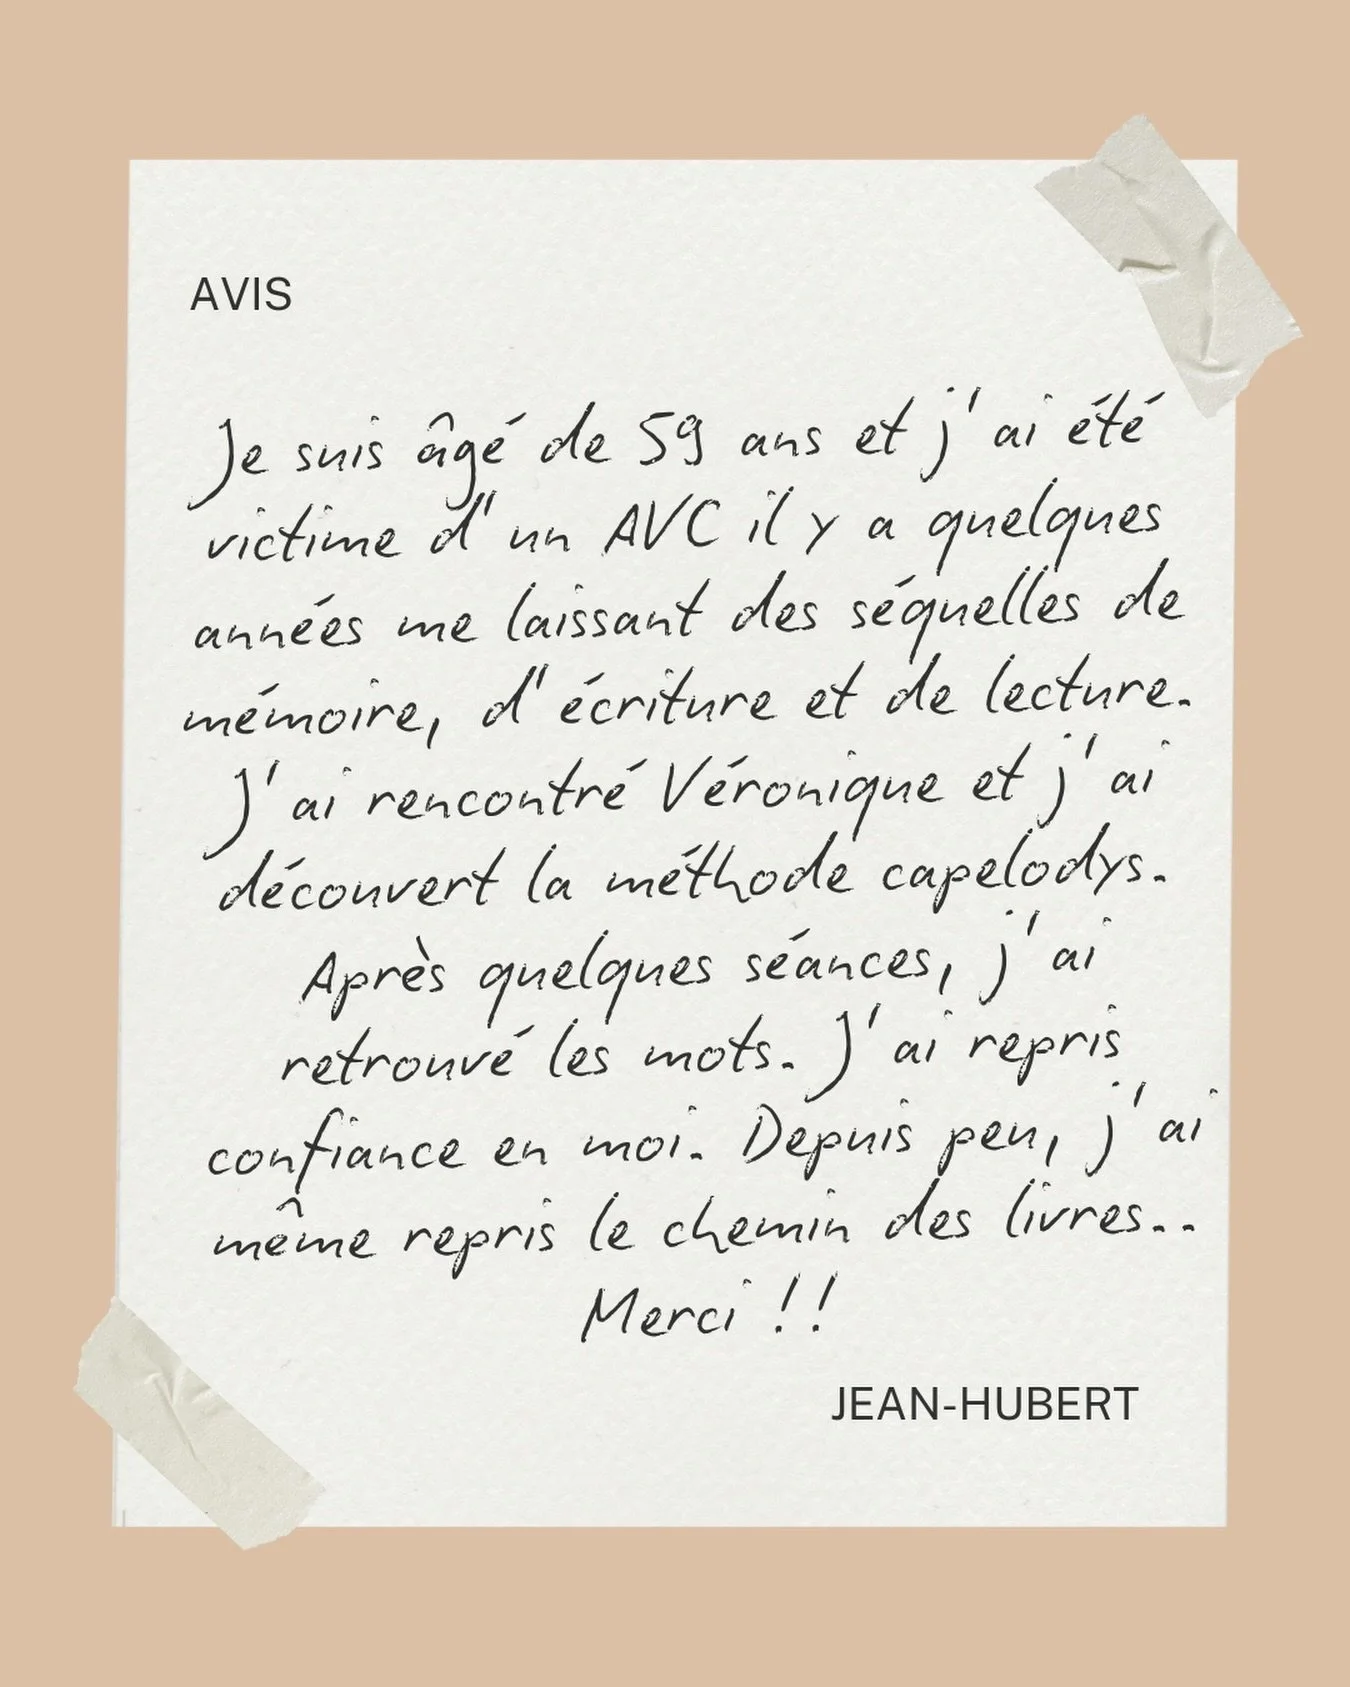 AVIS
Je suis âgé de 59 ans et j'ai été
victime d'un AVC il y a quelques
années me laissant des séquelles de
mémoire, d'écriture et de lecture.
J'ai rencontré Véronique et j'ai
découvert la méthode capelodys.
Après quelques séances, j'ai
retrouvé les mots. J'ai repris
confiance en moi. Depuis peu, j'ai
même repris le chemin des livres..
Merci !!
JEAN-HUBERT